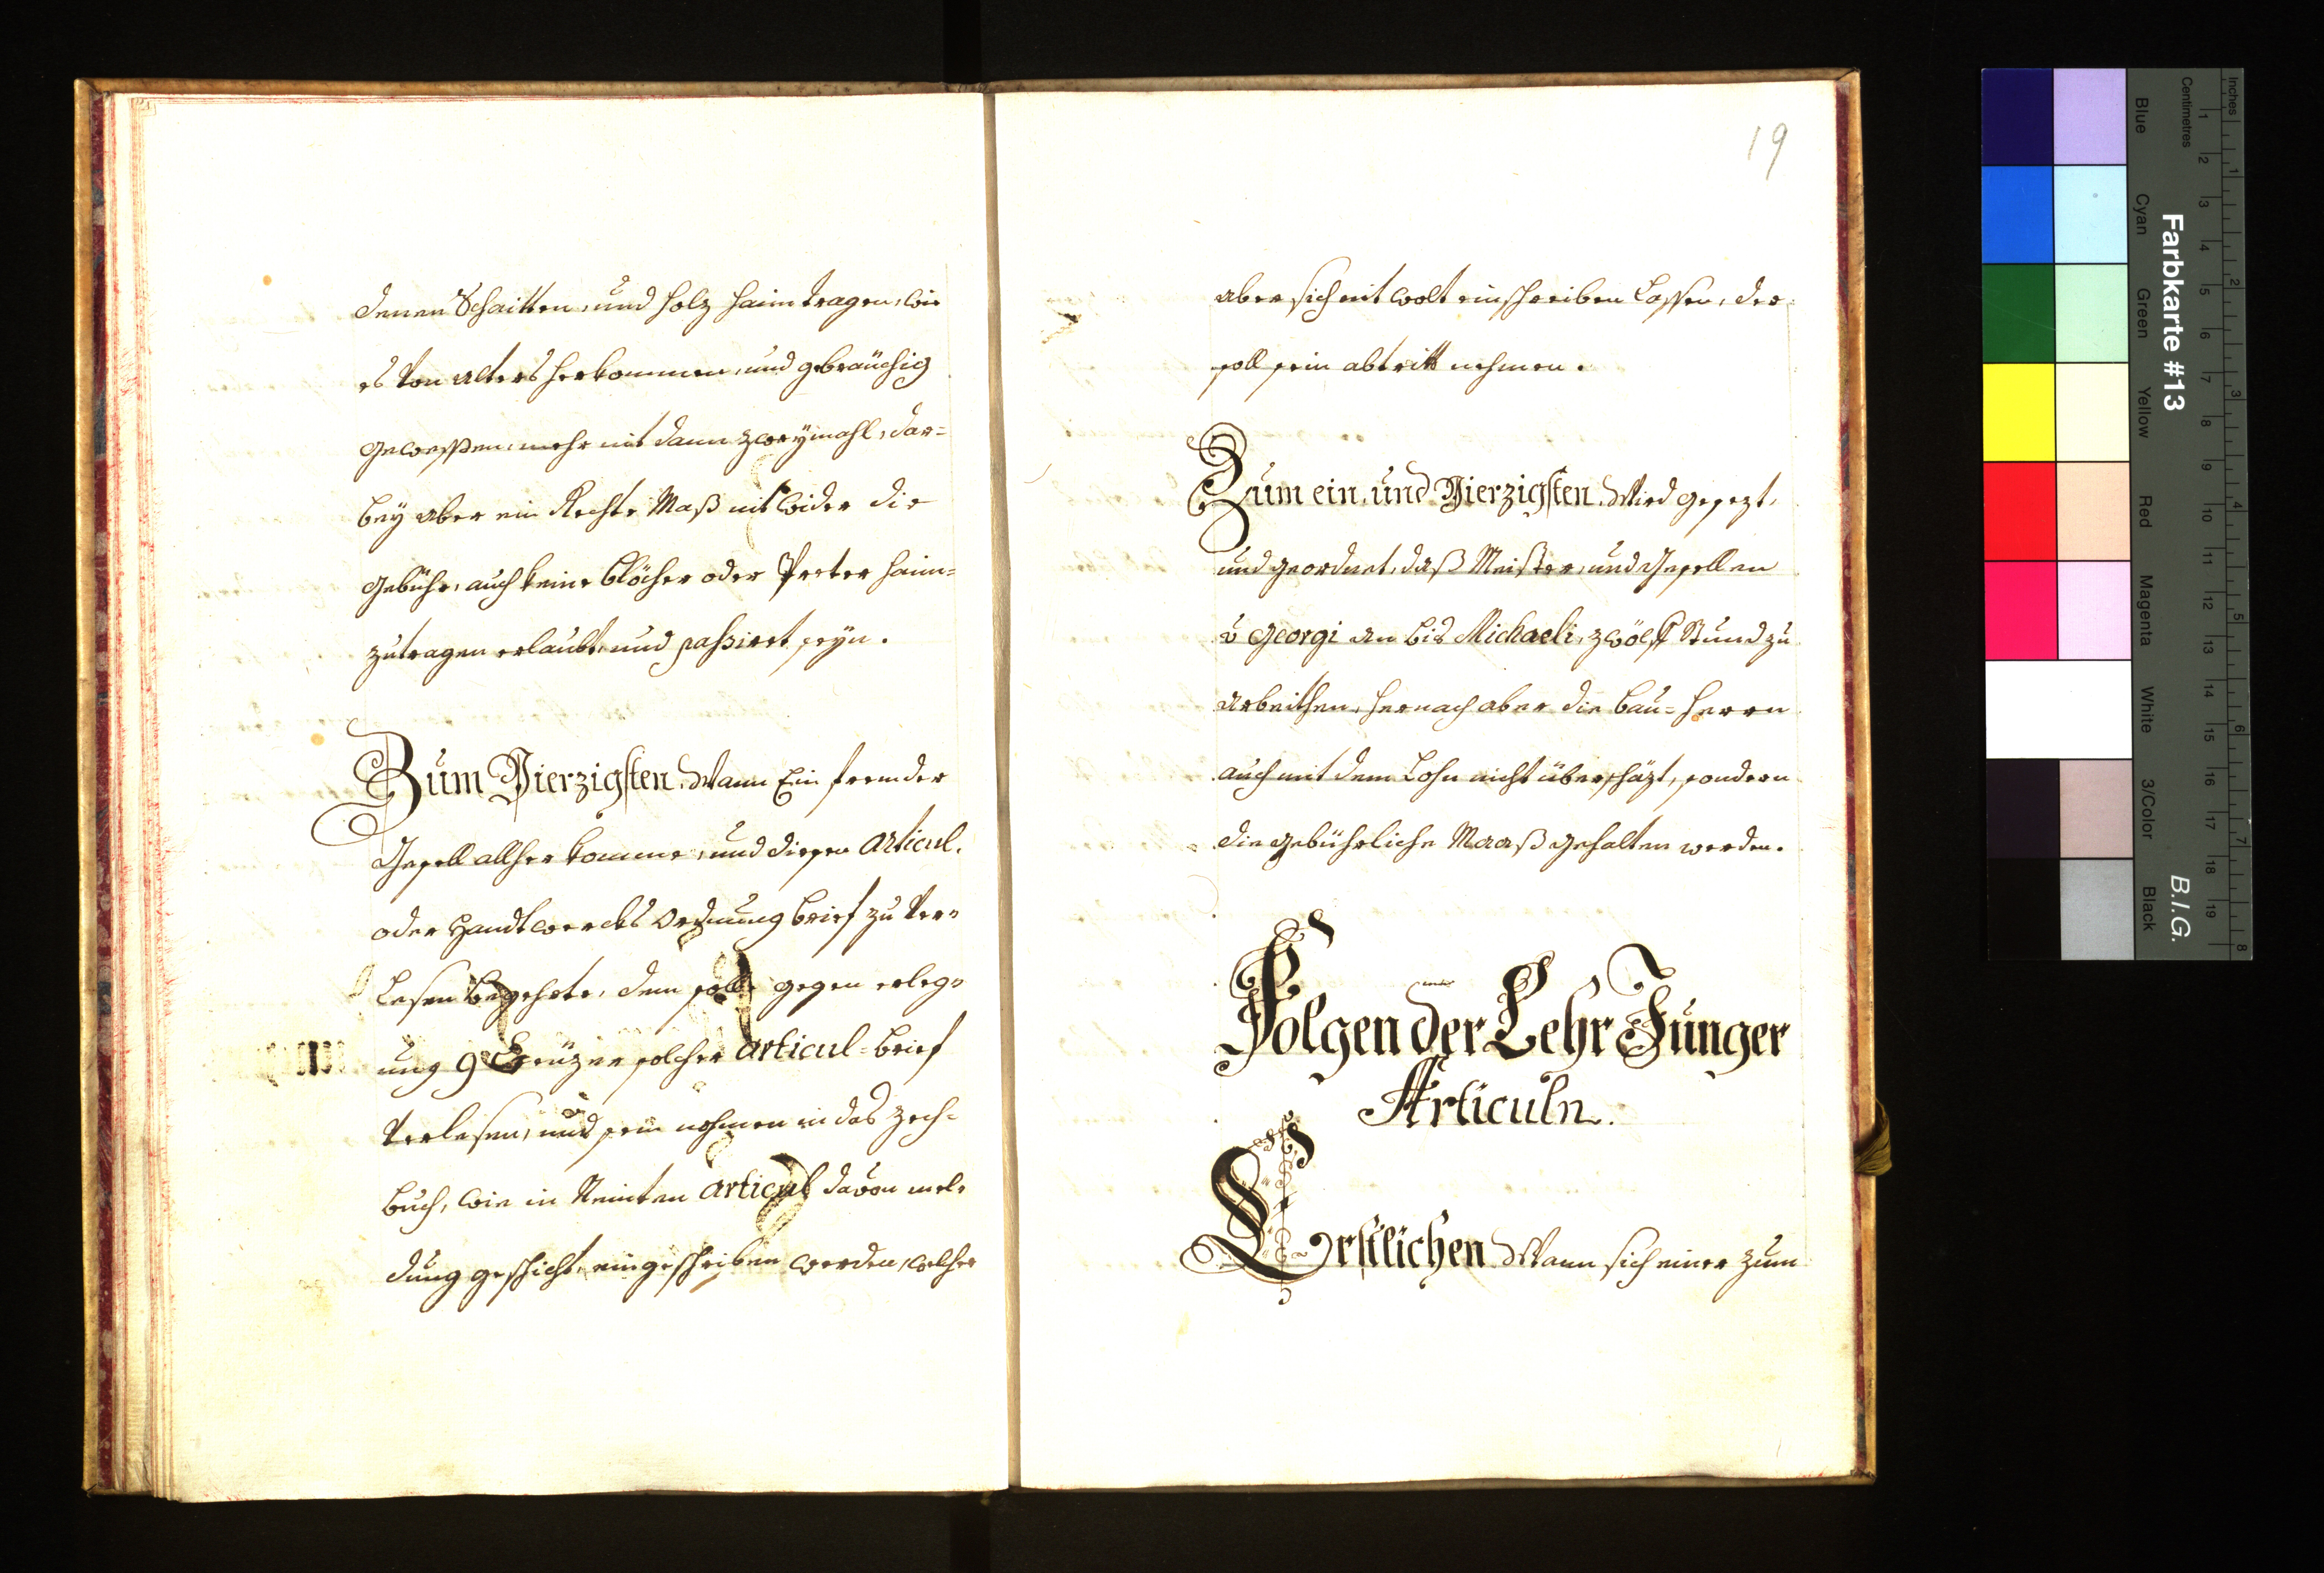 denen Schaitten, und holz haim tragen, wie
es von alters herkommen, und gebräuchig
gewessen, mehr nit dann zweymahl, dar=
bey aber ein Rechte Maß nit wider die
gebühr, auch keine blöcher oder Preter haim=
zutragen erlaubt, und passiret seyn.
Zum Vierzigsten. Wann Ein frembder
Gesell allher komme, und diesen Articul.
oder Handtwercks Ordnung brief zu ver=
Lesen begehrte, dem soll gegen erleg=
ung 9 Creüzer solcher Articul=brief
verlesen, und sein nahmen in das zech=
buch, wie in Neinten Articul davon mel=
dung geschicht, eingeschriben werden, welcher
19
aber sich nit wolt einschreiben Lassen, der
soll sein abtritt nehmen.
Zum ein und Vierzigsten. Wird gesezt,
und geordnet, daß Meister, und Gesellen
v Georgi an bis Michaeli, zwölff Stund zu
arbeithen, hernach aber die bau=herrn
auch mit dem Lohn nicht überschäzt, sondern
die gebührliche Maaß gehalten werden.
Folgen der Lehr Junger
Articuln.
Erstlichen Wann sich einer zum
Inches
Centimetres
Farbkarte #13
B.I.G.
Blue Cyan Green Yellow Red Magenta White 3/Color Black